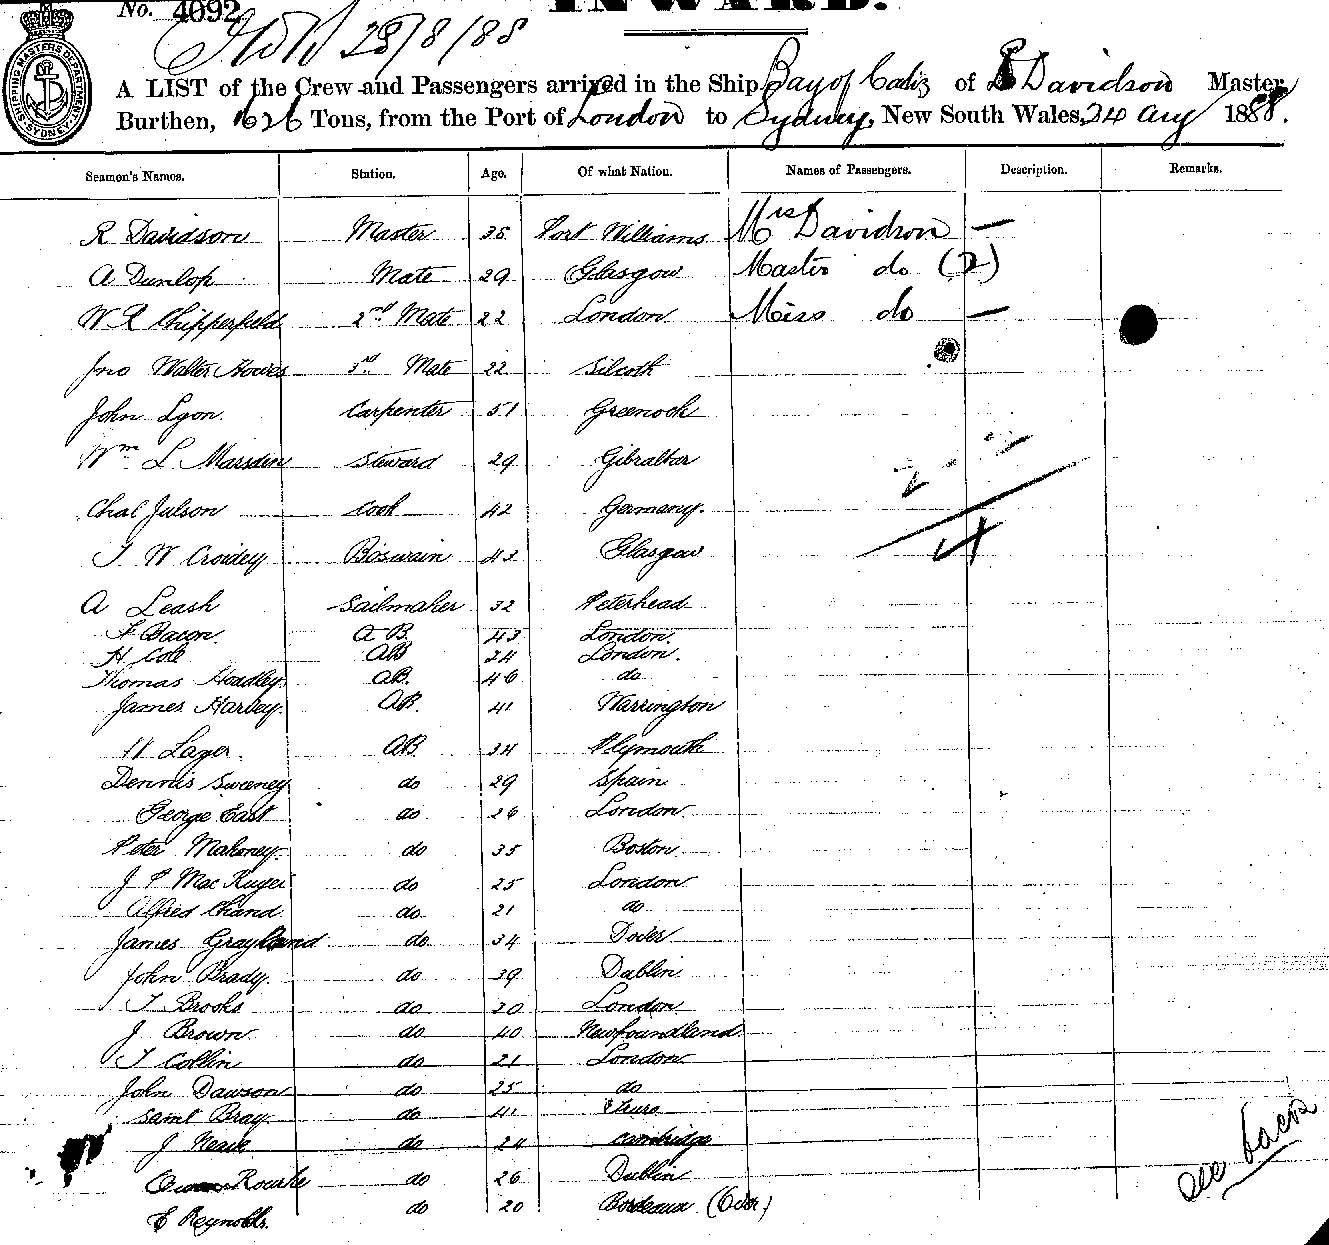 INWARD.
No. 4092
28/8/88
A LIST of the Crew and Passengers arrived in the Ship Bay of Cadiz of R Davidson Master,
Burthen, 1626 Tons, from the Port of London to Sydney, New South Wales, 24 Aug 1888.
SHIPPING MASTERS DEPARTMENT SYDNEY
Seamen's Names. Station. Age. Of what Nation. Names of Passengers. Description. Remarks.
R Davidson Master 35 Port Williams Mrs Davidson —
A Dunlop Mate 29 Glasgow Master do (2)
W R Chipperfield 2nd Mate 22 London Miss do —
Jno Walter Howes 3rd Mate 22 Siloth
John Lyon Carpenter 51 Greenock
Wm L Marsden Steward 29 Gibraltar
Chas Julson Cook 42 Germany.
J. W Croidey Boswain 43 Glasgow
A Leash Sailmaker 32 Peterhead
F Bacon. A B. 43 London.
H Cole AB 24 London.
Thomas Hoadley. AB. 46 do
James Harvey. AB. 41 Warrington
H Lager. AB. 34 Plymouth
Dennis Sweeney do 29 Spain
George East do 26 London
Peter Mahoney. do 35 Boston
J P Mac Kuger do 25 London
Alfred Chand do 21 do
James Grayland do 34 Dover
John Brady. do 39 Dublin
T Brooks do 30 London
J Brown do 40 Newfoundland
T Collin do 21 London
John Dawson do 25 do
Saml Bray do 41 Truro
J Neave do 24 Cambridge
Owen Rourke do 26 Dublin
E Reynolds. do 20 Bordeaux
see back